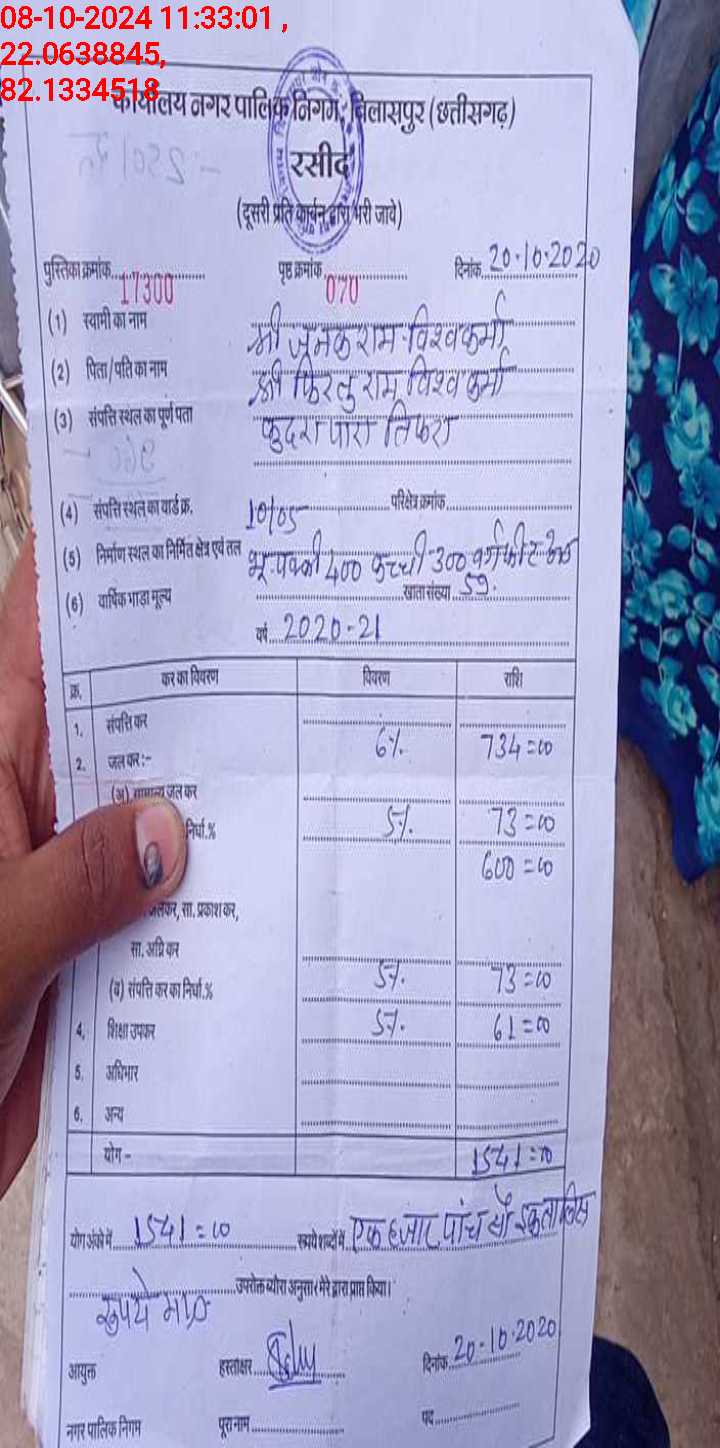 08-10-2024 11:33:01 ,
22.0638845,
82.1334518
कार्यालय नगर पालिक निगम, बिलासपुर (छत्तीसगढ़)
रसीद
(दूसरी प्रति कार्बन द्वारा भरी जावे)
पुस्तिका क्रमांक 17300 पृष्ठ क्रमांक 070 दिनांक 20.10.2020
(1) स्वामी का नाम श्री जनक राम विश्वकर्मा
(2) पिता/पति का नाम श्री फिरतु राम विश्वकर्मा
(3) संपत्ति स्थल का पूर्ण पता कुदरा पारा तिफरा
(4) संपत्ति स्थल का वार्ड क्र. 10/05 परिक्षेत्र क्रमांक
(5) निर्माण स्थल का निर्मित क्षेत्र एवं तल भू-पक्की 400 कच्ची 300 वर्गफीट
(6) वार्षिक भाड़ा मूल्य खाता संख्या 59.
वर्ष 2020-21
क्र. कर का विवरण विवरण राशि
1. संपत्ति कर 6% 734=00
2. जल कर :-
(अ) सामान्य जल कर 5% 73=00
निर्धा.% 600=00
जलकर, सा. प्रकाश कर,
सा. अग्नि कर 5% 73=00
(ब) संपत्ति कर का निर्धा.%
4. शिक्षा उपकर 5% 61=00
5. अधिभार
6. अन्य
योग - 1541=00
योग अंको में 1541=00 रूपये शब्दों में एक हजार पांच सौ इकतालीस
रूपये मात्र उपरोक्त ब्यौरा अनुसार मेरे द्वारा प्राप्त किया।
आयुक्त हस्ताक्षर दिनांक 20-10-2020
नगर पालिक निगम पूरा नाम पद